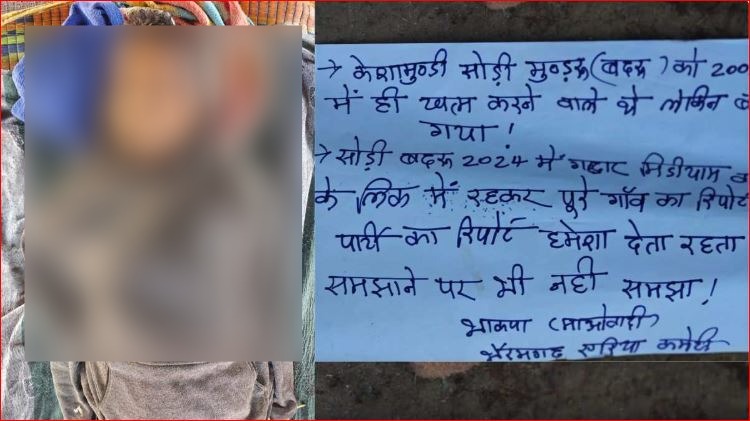 → केशामुण्डी सोड़ी मुण्ड्रा (बदरू) को 200
में ही खत्म करने वाले थे लेकिन ब
गया!
→ सोड़ी बदरू 2024 में गद्दार मिडीयाम
के लिंक में रहकर पूरे गाँव का रिपोर्ट
पार्टी का रिपोर्ट हमेशा देता रहता
समझाने पर भी नही समझा!
भाकपा (माओवादी)
भैरमगढ़ एरिया कमेटी